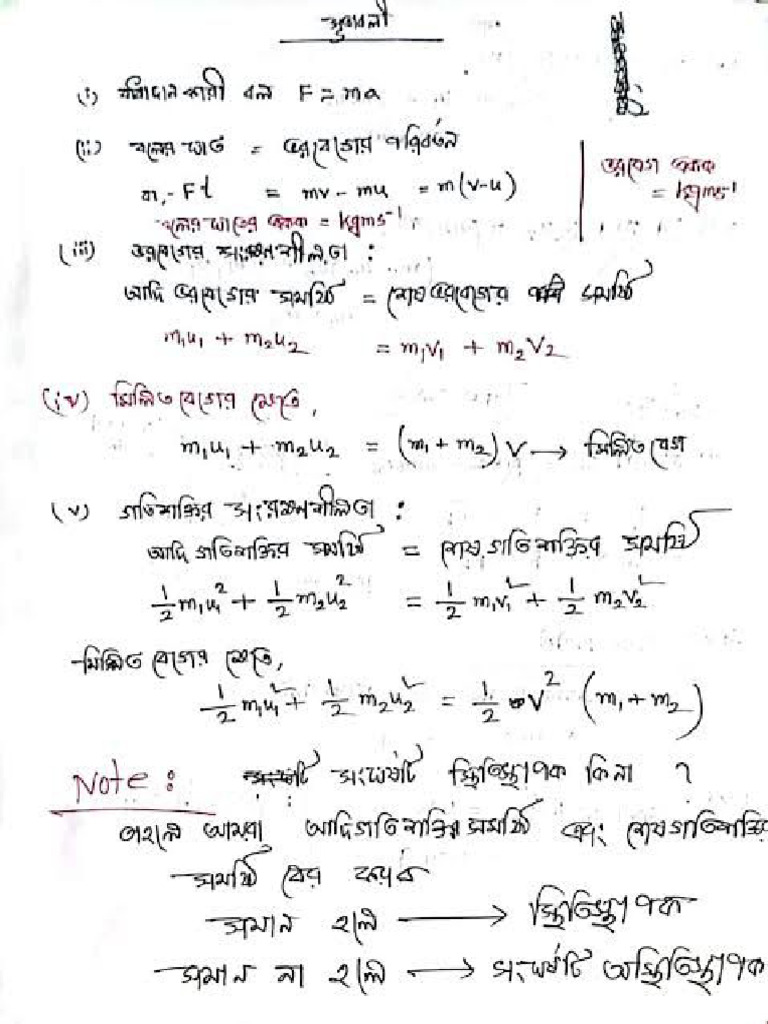 সূত্রাবলী
(i) বলদানকারী বল F = ma
(ii) বলের ঘাত = ভরবেগের পরিবর্তন
বা, Ft = mv - mu = m(v-u)
বলের ঘাতের একক = kgms⁻¹
ভরবেগ একক
= kgms⁻¹
(iii) ভরবেগের সংরক্ষণশীলতা :
আদি ভরবেগের সমষ্টি = শেষ ভরবেগের সমষ্টি
m₁u₁ + m₂u₂ = m₁v₁ + m₂v₂
(iv) মিলিত বেগের ক্ষেত্রে,
m₁u₁ + m₂u₂ = (m₁ + m₂) V → মিলিত বেগ
(v) গতিশক্তির সংরক্ষণশীলতা :
আদি গতিশক্তির সমষ্টি = শেষ গতিশক্তির সমষ্টি
½ m₁u₁² + ½ m₂u₂² = ½ m₁v₁² + ½ m₂v₂²
মিলিত বেগের ক্ষেত্রে,
½ m₁u₁² + ½ m₂u₂² = ½ V² (m₁ + m₂)
Note : সংঘর্ষটি স্থিতিস্থাপক কিনা ?
তাহলে আমরা আদিগতিশক্তির সমষ্টি এবং শেষগতিশক্তির
সমষ্টি বের করব
সমান হলে → স্থিতিস্থাপক
সমান না হলে → সংঘর্ষটি অস্থিতিস্থাপক